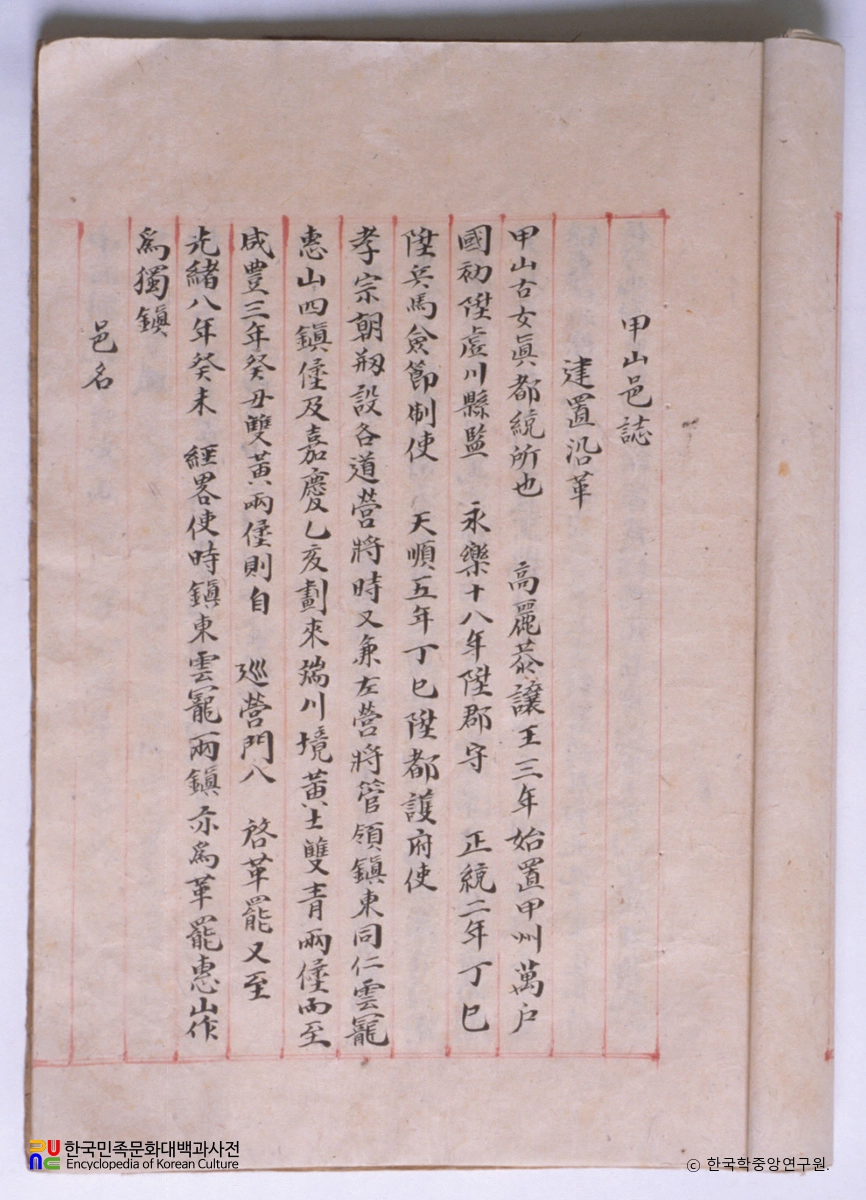 甲山邑誌
建置沿革
甲山古女眞都統所也 高麗恭讓王三年始置甲州萬户
國初陞虛川縣監 永樂十八年陞郡守 正統二年丁巳
陞兵馬僉節制使 天順五年丁巳陞都護府使
孝宗朝刱設各道營將時又兼左營將管領鎭東同仁雲寵
惠山四鎭堡及嘉慶乙亥劃來端川境黃土雙靑兩堡而至
咸豊三年癸丑雙黃兩堡則自 巡營門入 啓革罷又至
光緖八年癸未 經畧使時鎭東雲寵兩鎭亦爲革罷惠山作
爲獨鎭
邑名
한국민족문화대백과사전
Encyclopedia of Korean Culture
© 한국학중앙연구원.